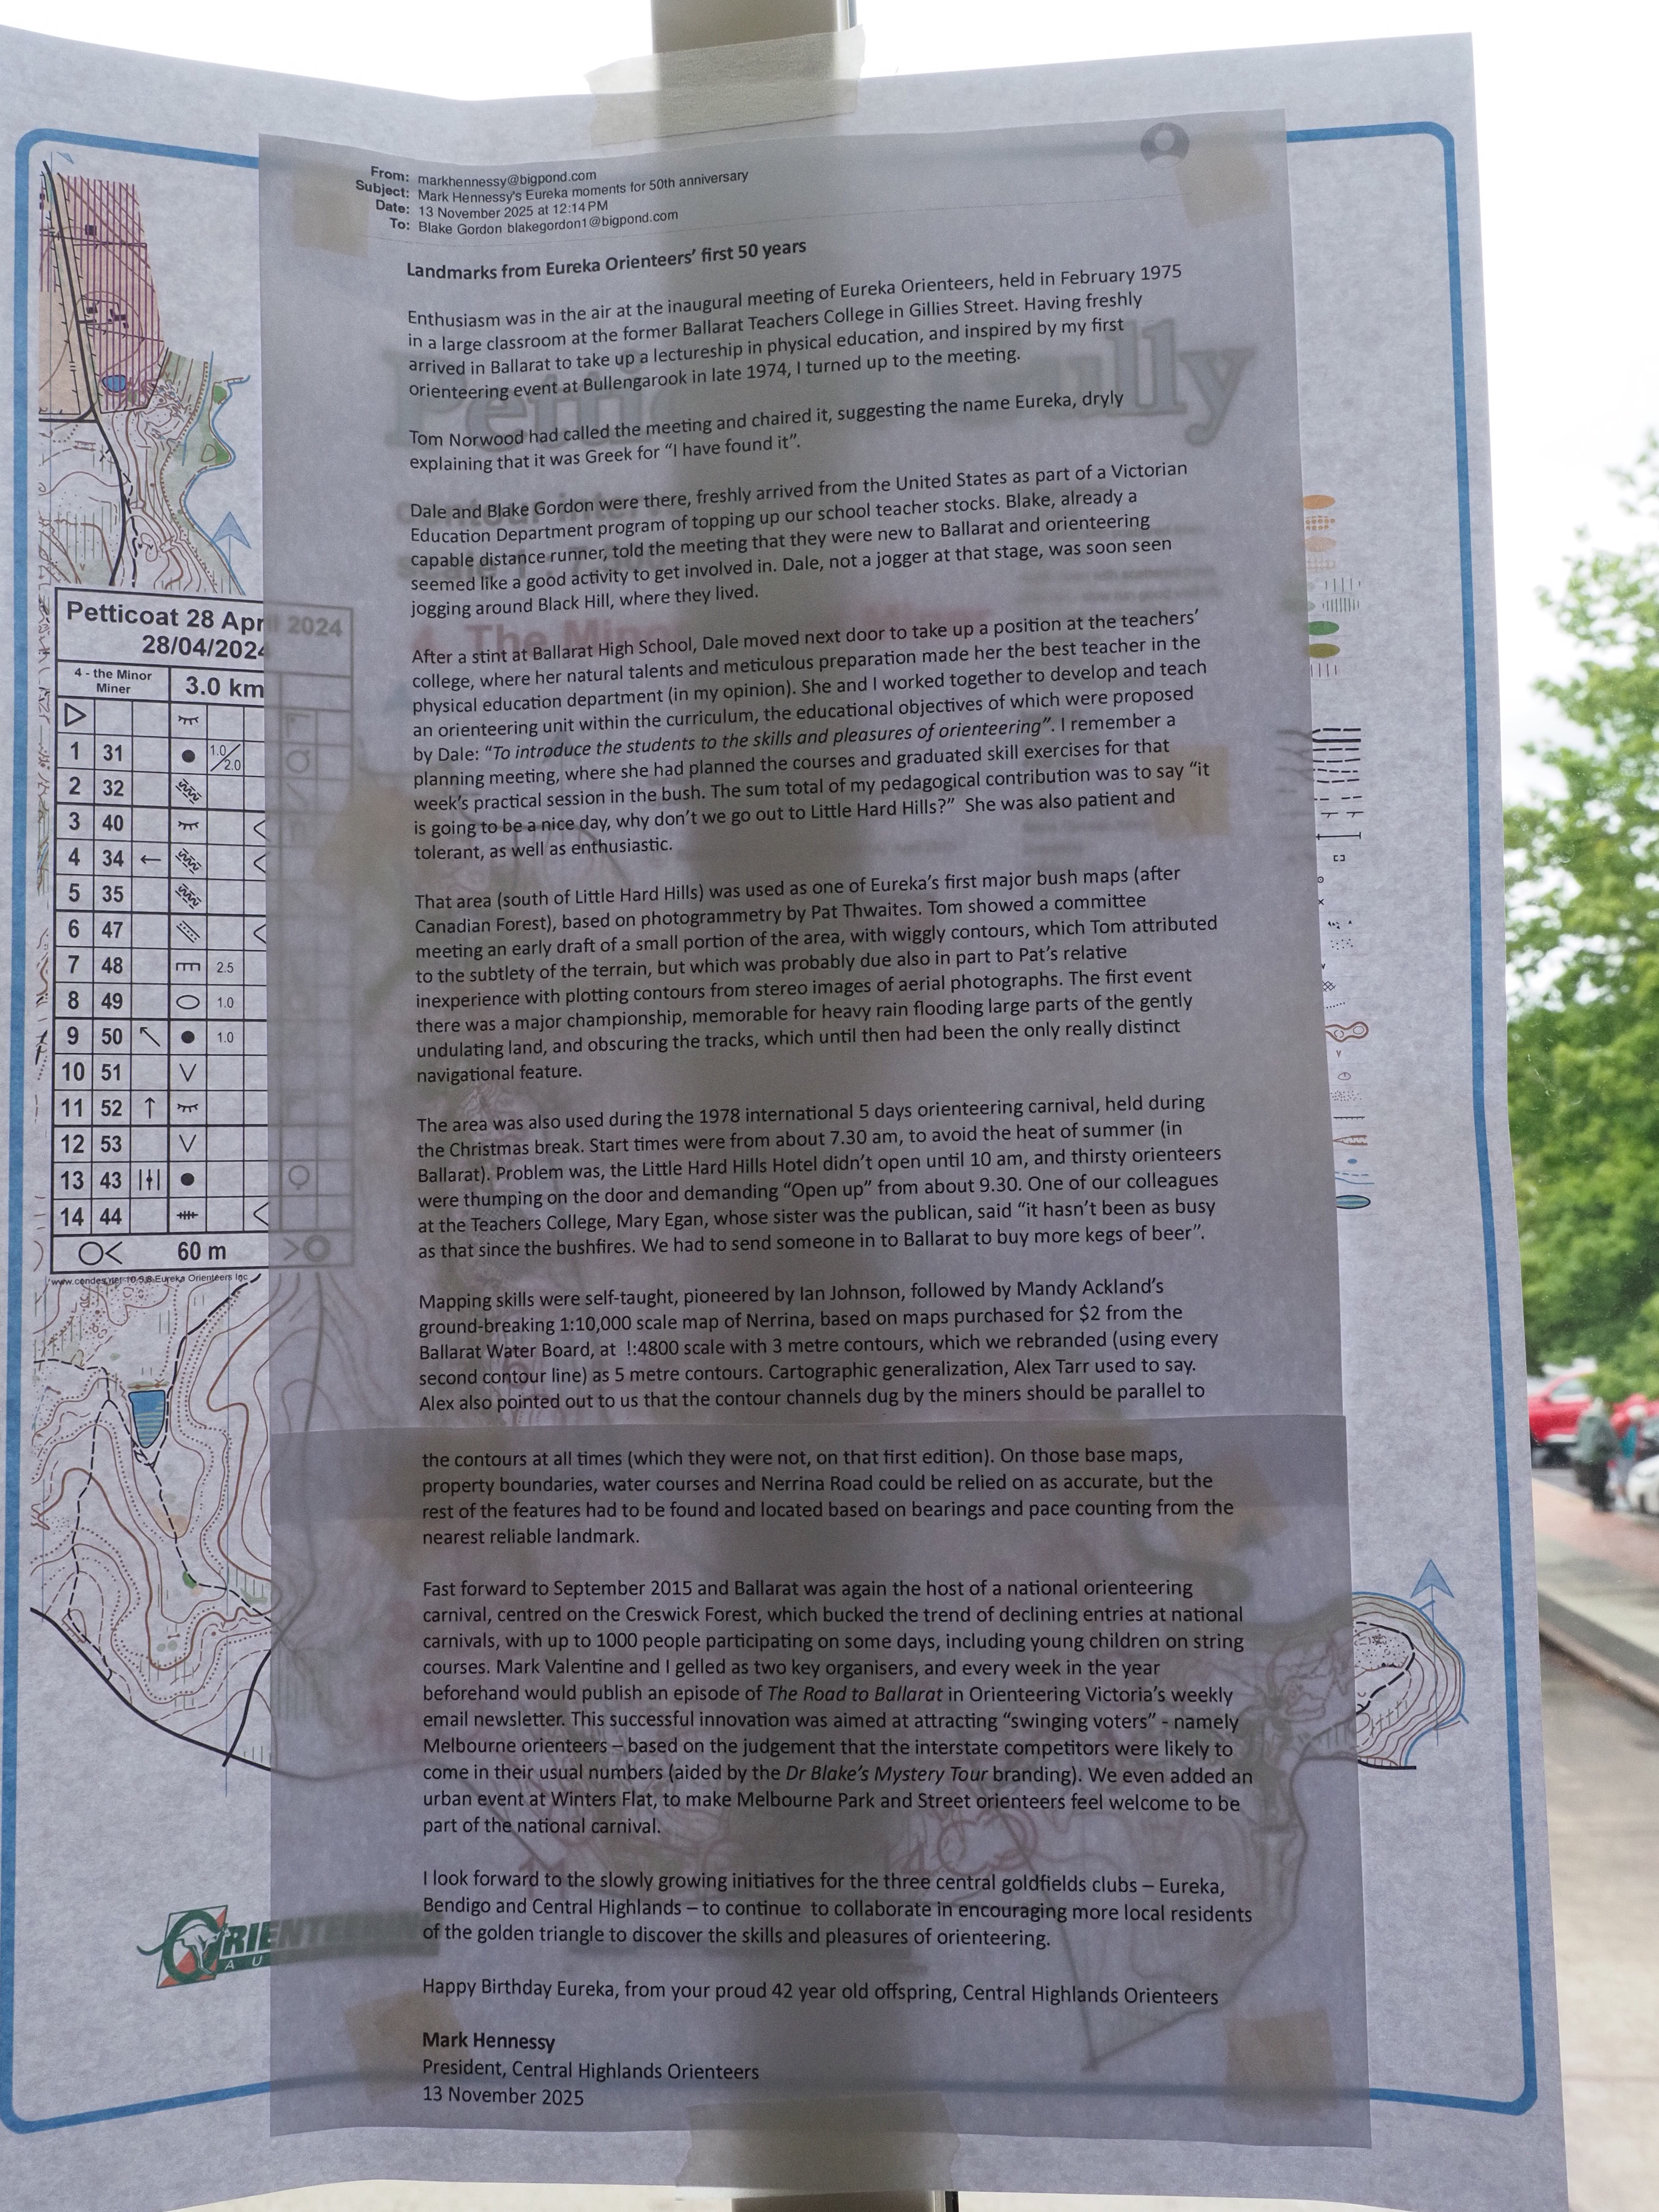 From: markhennessy@bigpond.com
Subject: Mark Hennessy's Eureka moments for 50th anniversary
Date: 13 November 2025 at 12:14 PM
To: Blake Gordon blakegordon1@bigpond.com
Landmarks from Eureka Orienteers’ first 50 years
Enthusiasm was in the air at the inaugural meeting of Eureka Orienteers, held in February 1975
in a large classroom at the former Ballarat Teachers College in Gillies Street. Having freshly
arrived in Ballarat to take up a lectureship in physical education, and inspired by my first
orienteering event at Bullengarook in late 1974, I turned up to the meeting.
Tom Norwood had called the meeting and chaired it, suggesting the name Eureka, dryly
explaining that it was Greek for “I have found it”.
Dale and Blake Gordon were there, freshly arrived from the United States as part of a Victorian
Education Department program of topping up our school teacher stocks. Blake, already a
capable distance runner, told the meeting that they were new to Ballarat and orienteering
seemed like a good activity to get involved in. Dale, not a jogger at that stage, was soon seen
jogging around Black Hill, where they lived.
After a stint at Ballarat High School, Dale moved next door to take up a position at the teachers’
college, where her natural talents and meticulous preparation made her the best teacher in the
physical education department (in my opinion). She and I worked together to develop and teach
an orienteering unit within the curriculum, the educational objectives of which were proposed
by Dale: “To introduce the students to the skills and pleasures of orienteering”. I remember a
planning meeting, where she had planned the courses and graduated skill exercises for that
week’s practical session in the bush. The sum total of my pedagogical contribution was to say “it
is going to be a nice day, why don’t we go out to Little Hard Hills?” She was also patient and
tolerant, as well as enthusiastic.
That area (south of Little Hard Hills) was used as one of Eureka’s first major bush maps (after
Canadian Forest), based on photogrammetry by Pat Thwaites. Tom showed a committee
meeting an early draft of a small portion of the area, with wiggly contours, which Tom attributed
to the subtlety of the terrain, but which was probably due also in part to Pat’s relative
inexperience with plotting contours from stereo images of aerial photographs. The first event
there was a major championship, memorable for heavy rain flooding large parts of the gently
undulating land, and obscuring the tracks, which until then had been the only really distinct
navigational feature.
The area was also used during the 1978 international 5 days orienteering carnival, held during
the Christmas break. Start times were from about 7.30 am, to avoid the heat of summer (in
Ballarat). Problem was, the Little Hard Hills Hotel didn’t open until 10 am, and thirsty orienteers
were thumping on the door and demanding “Open up” from about 9.30. One of our colleagues
at the Teachers College, Mary Egan, whose sister was the publican, said “it hasn’t been as busy
as that since the bushfires. We had to send someone in to Ballarat to buy more kegs of beer”.
Mapping skills were self-taught, pioneered by Ian Johnson, followed by Mandy Ackland’s
ground-breaking 1:10,000 scale map of Nerrina, based on maps purchased for $2 from the
Ballarat Water Board, at !:4800 scale with 3 metre contours, which we rebranded (using every
second contour line) as 5 metre contours. Cartographic generalization, Alex Tarr used to say.
Alex also pointed out to us that the contour channels dug by the miners should be parallel to
the contours at all times (which they were not, on that first edition). On those base maps,
property boundaries, water courses and Nerrina Road could be relied on as accurate, but the
rest of the features had to be found and located based on bearings and pace counting from the
nearest reliable landmark.
Fast forward to September 2015 and Ballarat was again the host of a national orienteering
carnival, centred on the Creswick Forest, which bucked the trend of declining entries at national
carnivals, with up to 1000 people participating on some days, including young children on string
courses. Mark Valentine and I gelled as two key organisers, and every week in the year
beforehand would publish an episode of The Road to Ballarat in Orienteering Victoria’s weekly
email newsletter. This successful innovation was aimed at attracting “swinging voters” - namely
Melbourne orienteers – based on the judgement that the interstate competitors were likely to
come in their usual numbers (aided by the Dr Blake’s Mystery Tour branding). We even added an
urban event at Winters Flat, to make Melbourne Park and Street orienteers feel welcome to be
part of the national carnival.
I look forward to the slowly growing initiatives for the three central goldfields clubs – Eureka,
Bendigo and Central Highlands – to continue to collaborate in encouraging more local residents
of the golden triangle to discover the skills and pleasures of orienteering.
Happy Birthday Eureka, from your proud 42 year old offspring, Central Highlands Orienteers
Mark Hennessy
President, Central Highlands Orienteers
13 November 2025
Petticoat 28 April 2024
28/04/2024
4 - the Minor
Miner
3.0 km
1 31 1.0/2.0
2 32
3 40
4 34
5 35
6 47
7 48 2.5
8 49 1.0
9 50 1.0
10 51
11 52
12 53
13 43
14 44
60 m
www.condes.net 10.5.8 Eureka Orienteers Inc
ORIENTEERING